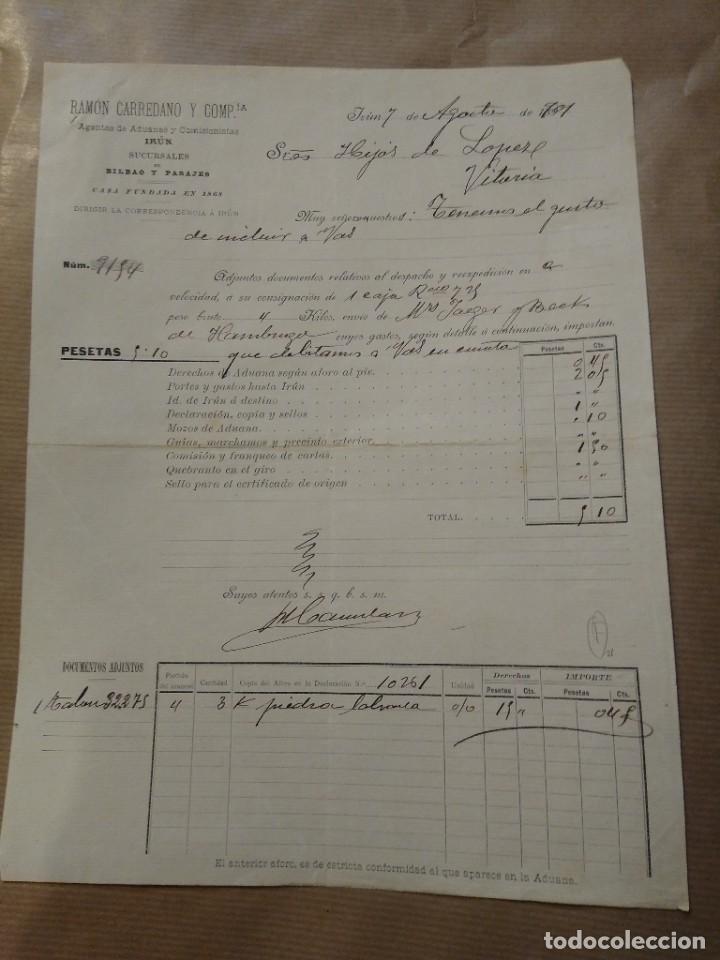 RAMÓN CARREDANO Y COMP.ÍA
Agentes de Aduanas y Comisionistas
IRÚN
SUCURSALES
EN
BILBAO Y PASAJES
CASA FUNDADA EN 1868
DIRIGIR LA CORRESPONDENCIA Á IRÚN
Irún 7 de Agosto de
Sres Hijos de Lopez
Vitoria
Muy señores nuestros: Tenemos el gusto
de incluir a Vds
Núm. 9154
Adjuntos documentos relativos al despacho y reexpedición en G
velocidad, a su consignación de 1 caja
peso bruto 4 Kilos, envío de Mrs Jaeger y Beck
de Hamburgo cuyos gastos, según detalle á continuación, importan.
PESETAS 5.10 que debitamos a Vds en cuenta
Pesetas Cts.
Derechos de Aduana según aforo al pie. 0 45
Portes y gastos hasta Irún 2 05
Id. de Irún á destino " "
Declaración, copia y sellos 1 "
Mozos de Aduana. " 10
Guías, marchamos y precinto exterior. " "
Comisión y franqueo de cartas. 1 50
Quebranto en el giro " "
Sello para el certificado de origen " "
TOTAL. 5 10
Suyos atentos s. s. q. b. s. m.
DOCUMENTOS ADJUNTOS
Partida del arancel Cantidad Copia del Aforo en la Declaración N.º 10251 Unidad Derechos IMPORTE
Pesetas Cts. Pesetas Cts.
1 talon 32375 4 3 K piedra labrada 0/0 15 " 0 45
El anterior aforo, es de estricta conformidad al que aparece en la Aduana.
todocoleccion
todocoleccion.net